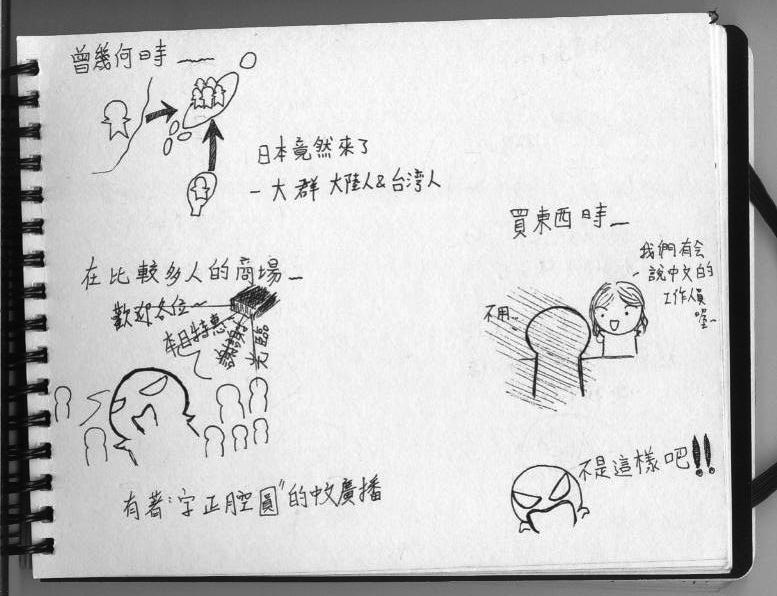 曾幾何時
日本竟然來了
一大群大陸人&台灣人
在比較多人的商場
歡迎各位~
本日特惠
謝謝
光臨
有著"字正腔圓"的中文廣播
買東西時
我們有会
說中文的
工作人員
喔~
不用...
不是這樣吧!!